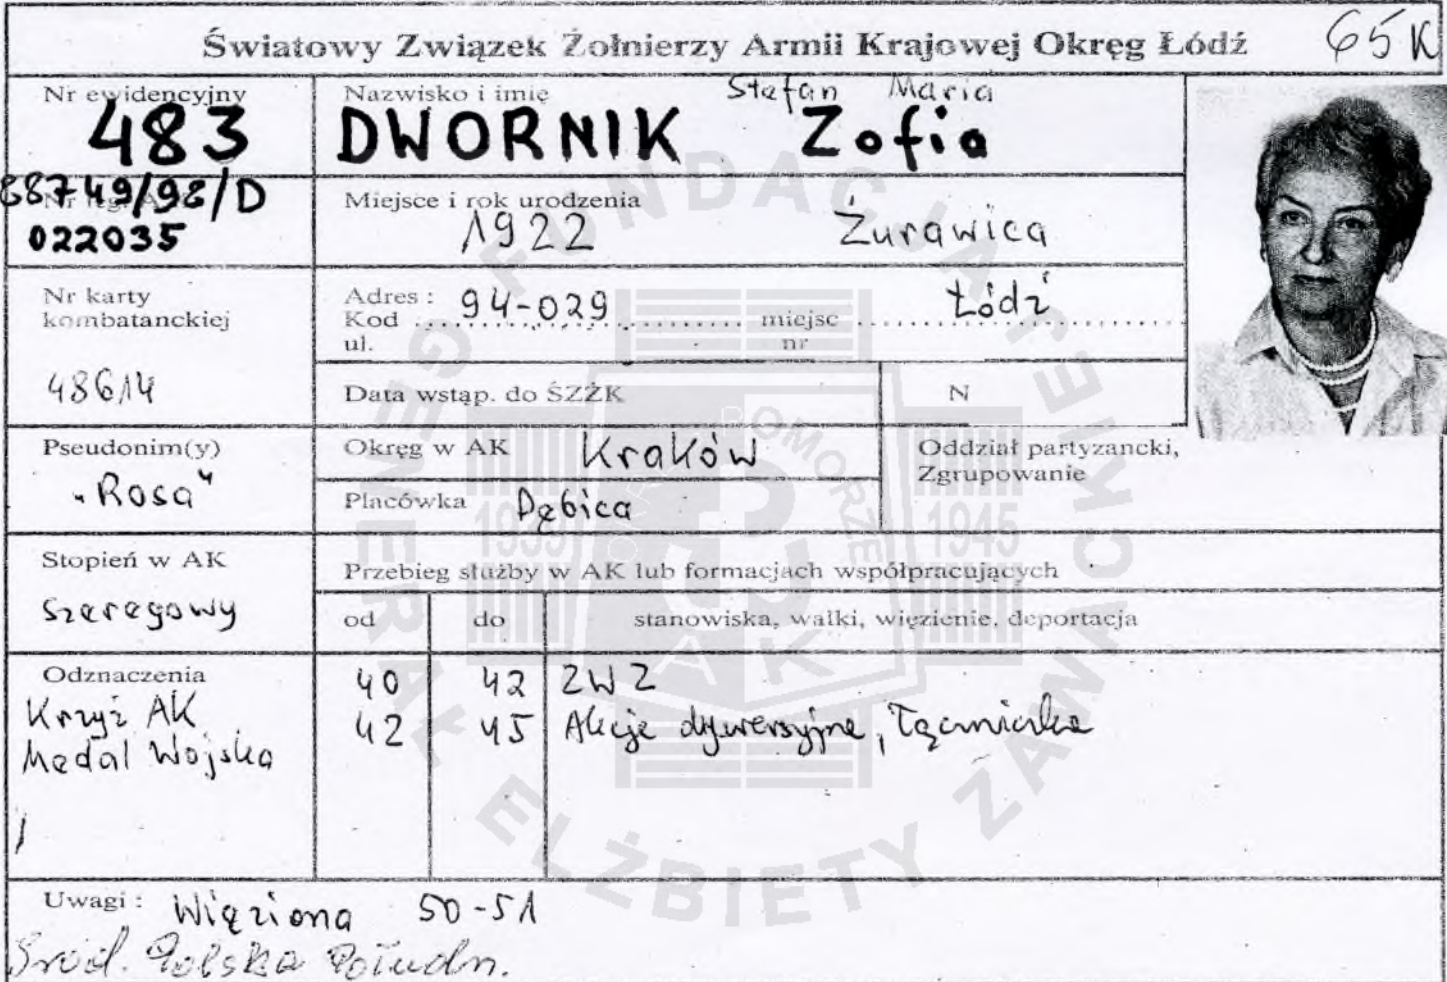 Światowy Związek Żołnierzy Armii Krajowej Okręg Łódź 65 K
Nr ewidencyjny
483
88749/98/D
022035
Nazwisko i imię Stefan Maria
DWORNIK Zofia
Miejsce i rok urodzenia
1922 Żurawica
Nr karty
kombatanckiej
48614
Adres : 94-029 Łódź
Kod miejsc
ul. nr
Data wstąp. do ŚZŻK N
Pseudonim(y)
"Rosa"
Okręg w AK Kraków
Placówka Dębica
Oddział partyzancki,
Zgrupowanie
Stopień w AK
Szeregowy
Przebieg służby w AK lub formacjach współpracujących
od do stanowiska, walki, więzienie, deportacja
Odznaczenia
Krzyż AK
Medal Wojska
40 42 ZWZ
42 45 Akcje dywersyjne, łączniczka
Uwagi : Więziona 50-51
Środ. Polska Połudn.
FUNDACJA GENERAŁ ELŻBIETY ZAWACKIEJ
POMORZE
1939 1945
AK